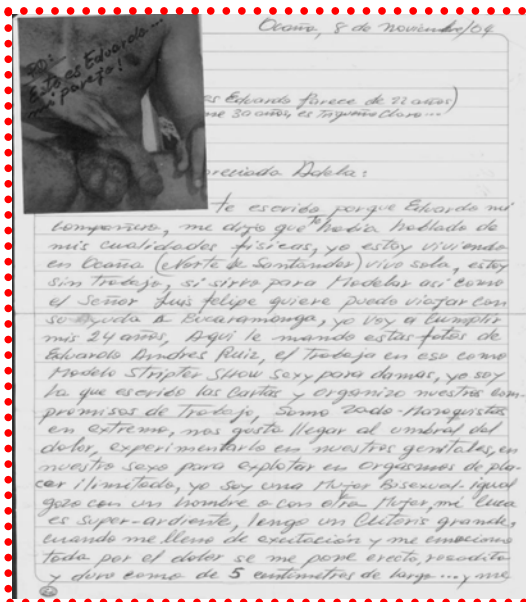 Ocaña, 8 de noviembre/04
PD:
Esto es Eduardo...
mi pareja!
es Eduardo parece de 22 años)
me 30 años, es Trigueño Claro...
preciada Adela:
te escribo porque Eduardo mi
compañero, me dijo que te había hablado de
mis cualidades físicas, yo estoy viviendo
en Ocaña (Norte de Santander) vivo sola, estoy
sin trabajo, si sirvo para Modelar así como
el Señor Luis felipe quiere puedo viajar con
su ayuda a Bucaramanga, yo voy a cumplir
mis 24 años, Aqui le mando estas fotos de
Eduardo Andres Ruiz, el Trabaja en eso como
Modelo Stripter Show Sexy para damas, yo soy
la que escribo las Cartas y organizo nuestros com-
promisos de Trabajo, Somo zado-Mazoquistas
en extremo, nos gusta llegar al umbral del
dolor, experimentarlo en nuestros genitales, en
nuestro sexo para explotar en orgasmos de pla-
cer ilimitado, yo soy una Mujer Bisexual igual
gozo con un hombre o con otra Mujer, mi Cuca
es super-ardiente, tengo un Clitoris grande,
cuando me lleno de exitación y me emociono
toda por el dolor se me pone erecto, rosadito
y duro como de 5 centimetros de largo... y me